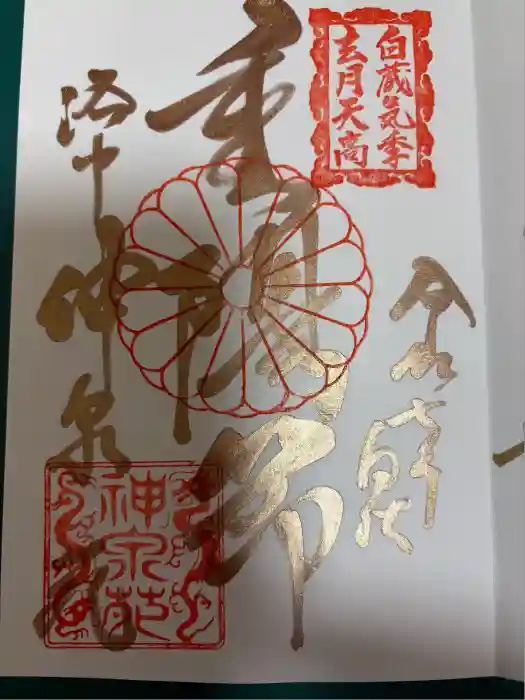 白蔵気季
玄月天高
令和
重陽節
洛中
神泉苑
神泉苑